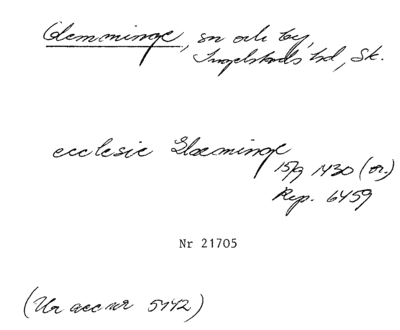 Glemminge, sn och by,
Ingelstads hd, Sk.
ecclesie Glæminge
15/9 1430 (or.)
Rep. 6459
Nr 21705
(Ur acc nr 5142)